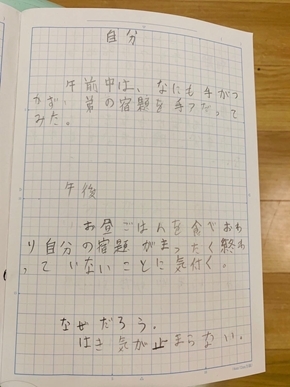 自分
午前中は、なにも手がつ
かず、弟の宿題を手つだって
みた。
午後
お昼ごはんを食べおわ
り自分の宿題がまったく終わ
っていないことに気付く。
なぜだろう。
はき気が止まらない。